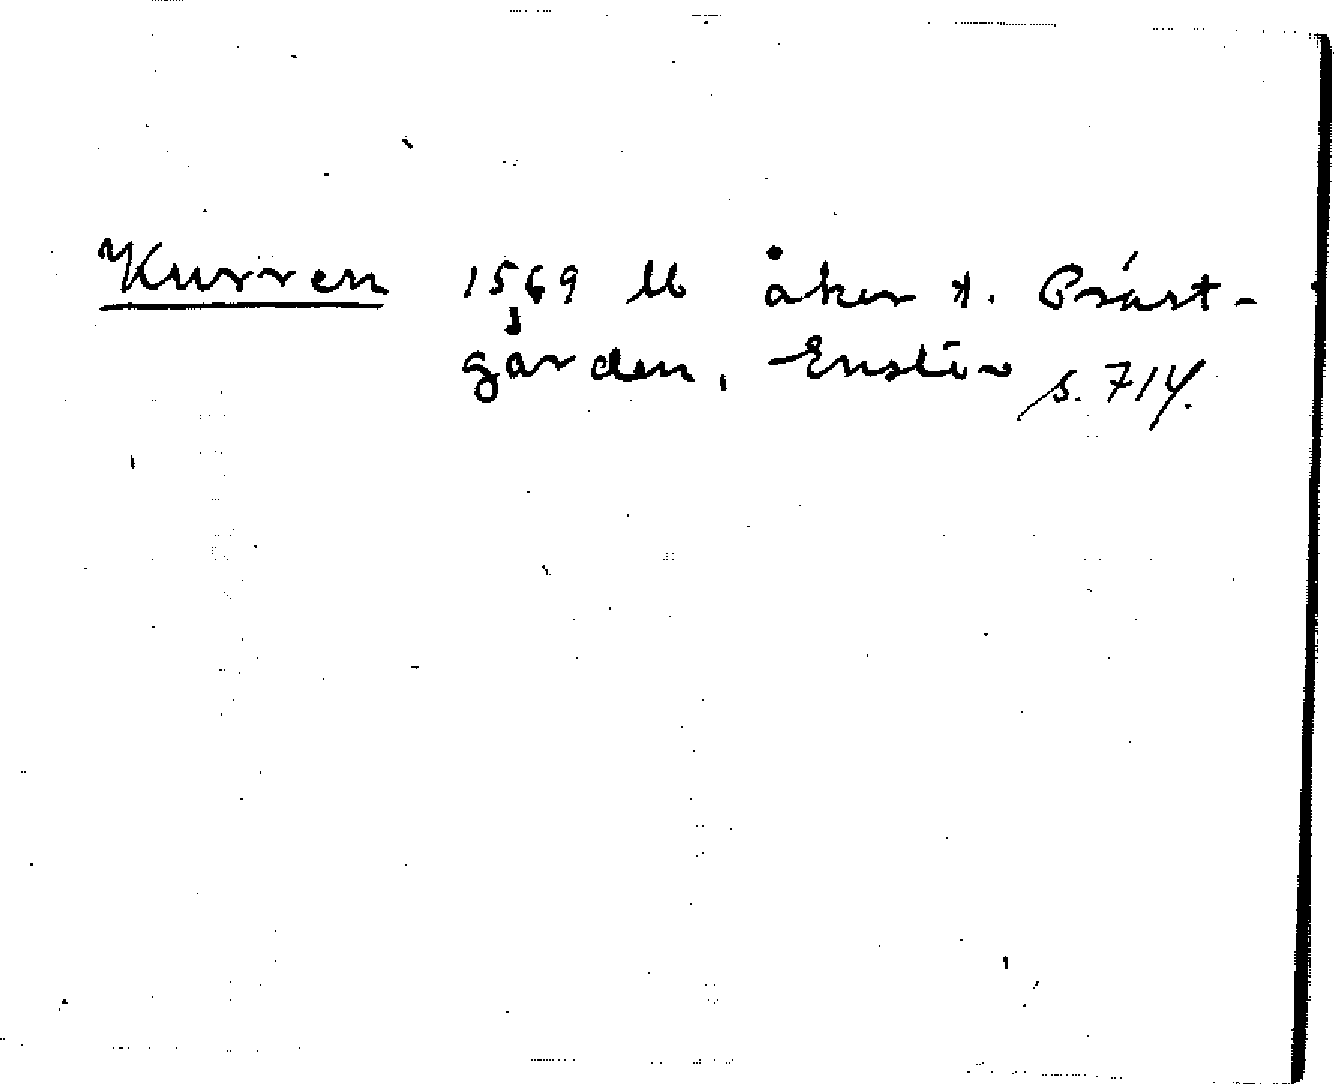 Kurren 1569 M åker t. Präst-
gården, Enstén s. 714.